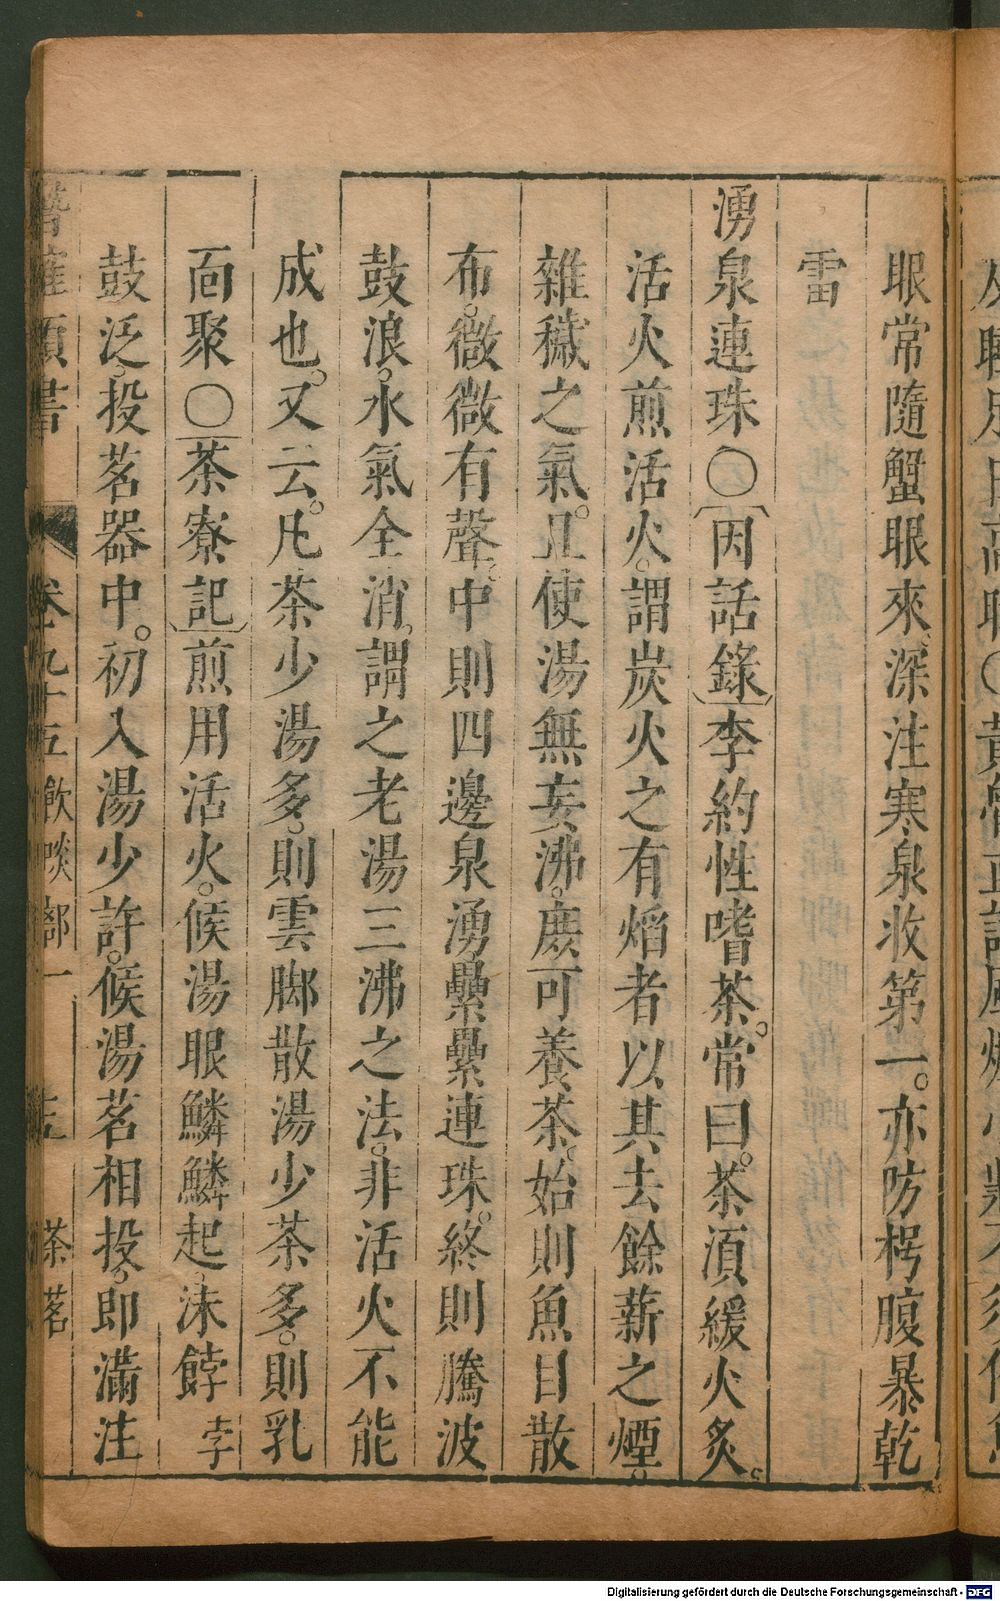 眼常隨蟹眼來深注寒泉收第一。亦防枵腹暴乾
雷
湧泉連珠〇因話錄李約性嗜茶。常曰。茶須緩火炙。
活火煎活火。謂炭火之有焰者以其去餘薪之煙。
雜穢之氣。且使湯無妄沸。庶可養茶。始則魚目散
布。微微有聲。中則四邊泉湧纍纍連珠。終則騰波
鼓浪。水氣全消。謂之老湯。三沸之法。非活火不能
成也。又云。凡茶少湯多。則雲脚散湯少茶多。則乳
面聚〇茶寮記煎用活火。候湯眼鱗鱗起。沫餑孛
鼓泛。投茗器中。初入湯少許。候湯茗相投。即滿注
潛確類書 卷九十五 飲啖部一 茶茗
Digitalisierung gefördert durch die Deutsche Forschungsgemeinschaft - DFG